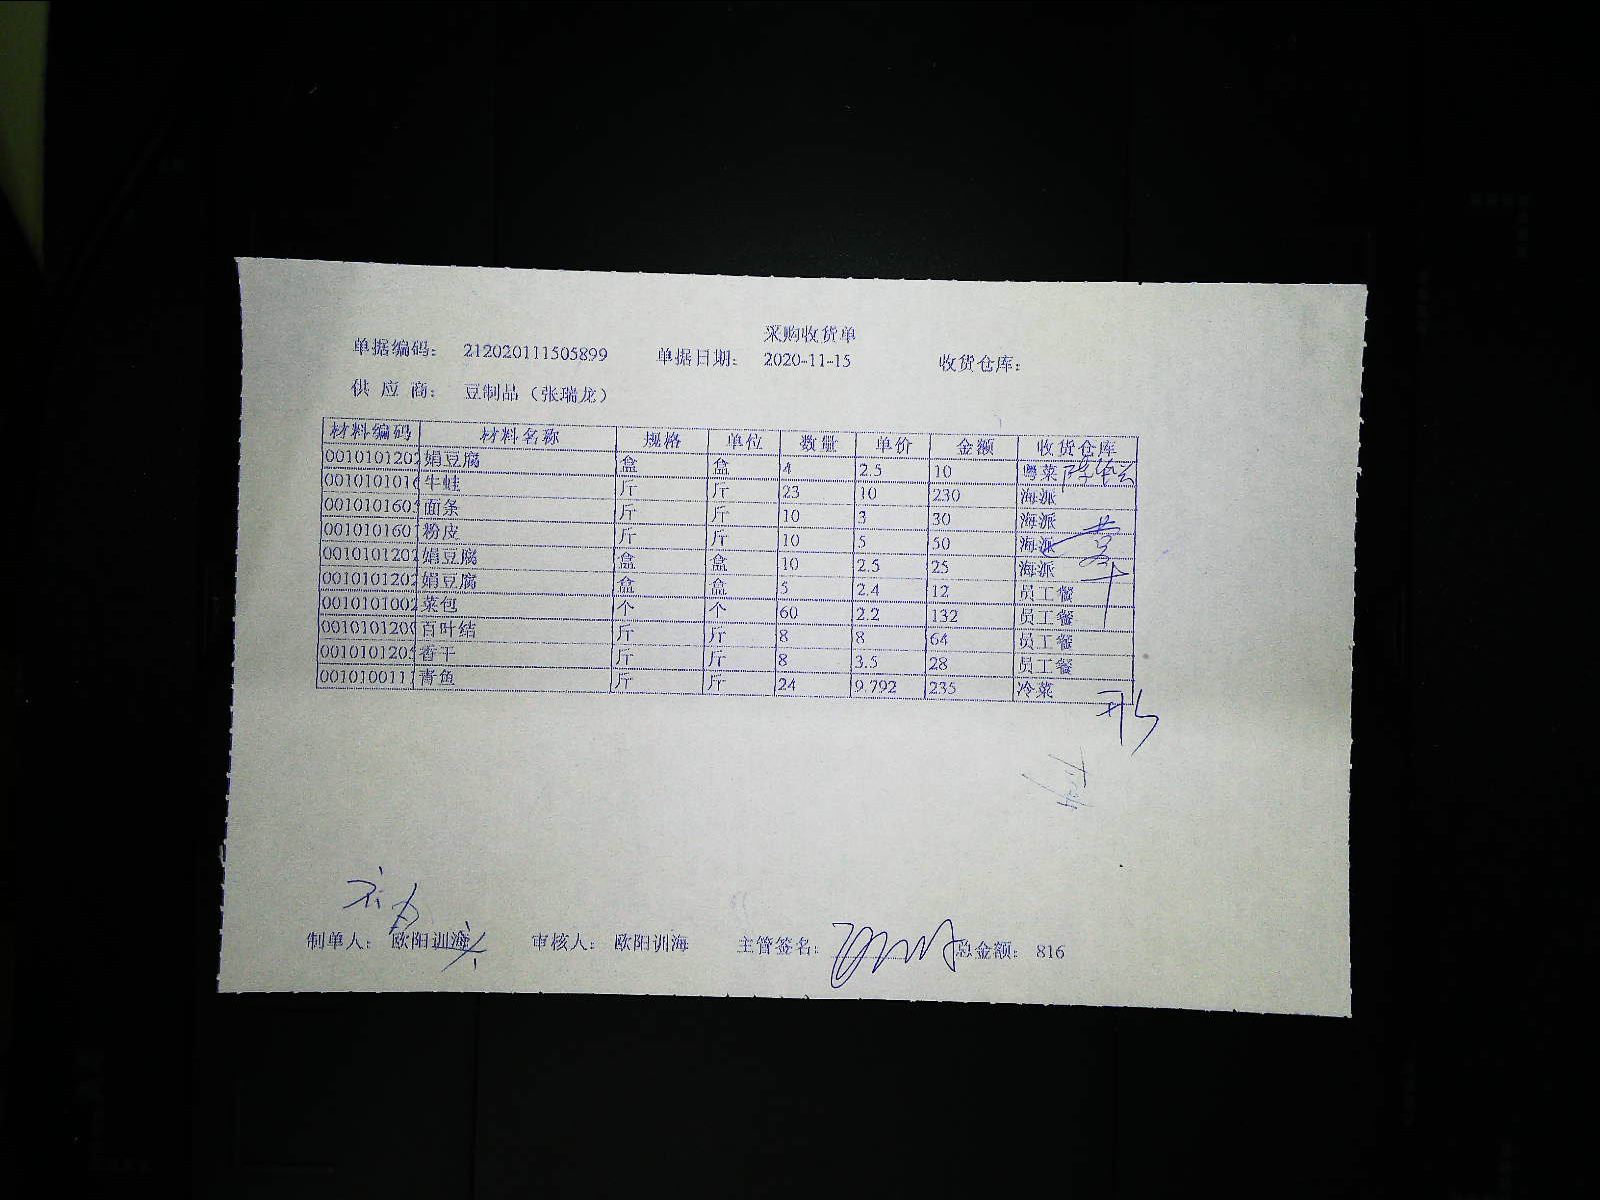 采购收货单
单据编码： 212020111505899 单据日期： 2020-11-15 收货仓库：
供 应 商： 豆制品（张瑞龙）
材料编码 材料名称 规格 单位 数量 单价 金额 收货仓库
0010101202 娟豆腐 盒 盒 4 2.5 10 粤菜
001010101 牛蛙 斤 斤 23 10 230 海派
001010160 面条 斤 斤 10 3 30 海派
001010160 粉皮 斤 斤 10 5 50 海派
0010101202 娟豆腐 盒 盒 10 2.5 25 海派
0010101202 娟豆腐 盒 盒 5 2.4 12 员工餐
0010101002 菜包 个 个 60 2.2 132 员工餐
001010120 百叶结 斤 斤 8 8 64 员工餐
001010120 香干 斤 斤 8 3.5 28 员工餐
001010011 青鱼 斤 斤 24 9.792 235 冷菜
制单人： 欧阳训海 审核人： 欧阳训海 主管签名： 总金额： 816